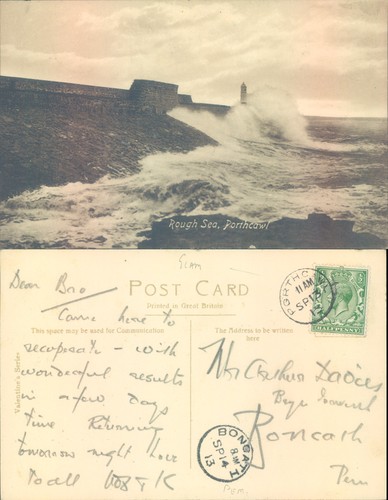 Rough Sea, Porthcawl
POST CARD
Printed in Great Britain
This space may be used for Communication
The Address to be written
here
Valentine's Series
Dear Bro
Came here to
recuperate - with
wonderful results
in a few days
time Returning
tomorrow night love
to all
Mr Arthur Davies
Boncath
Pem
PORTHCAWL
11 AM
SP 13
13
HALFPENNY
BONCATH
8 AM
SP 14
13